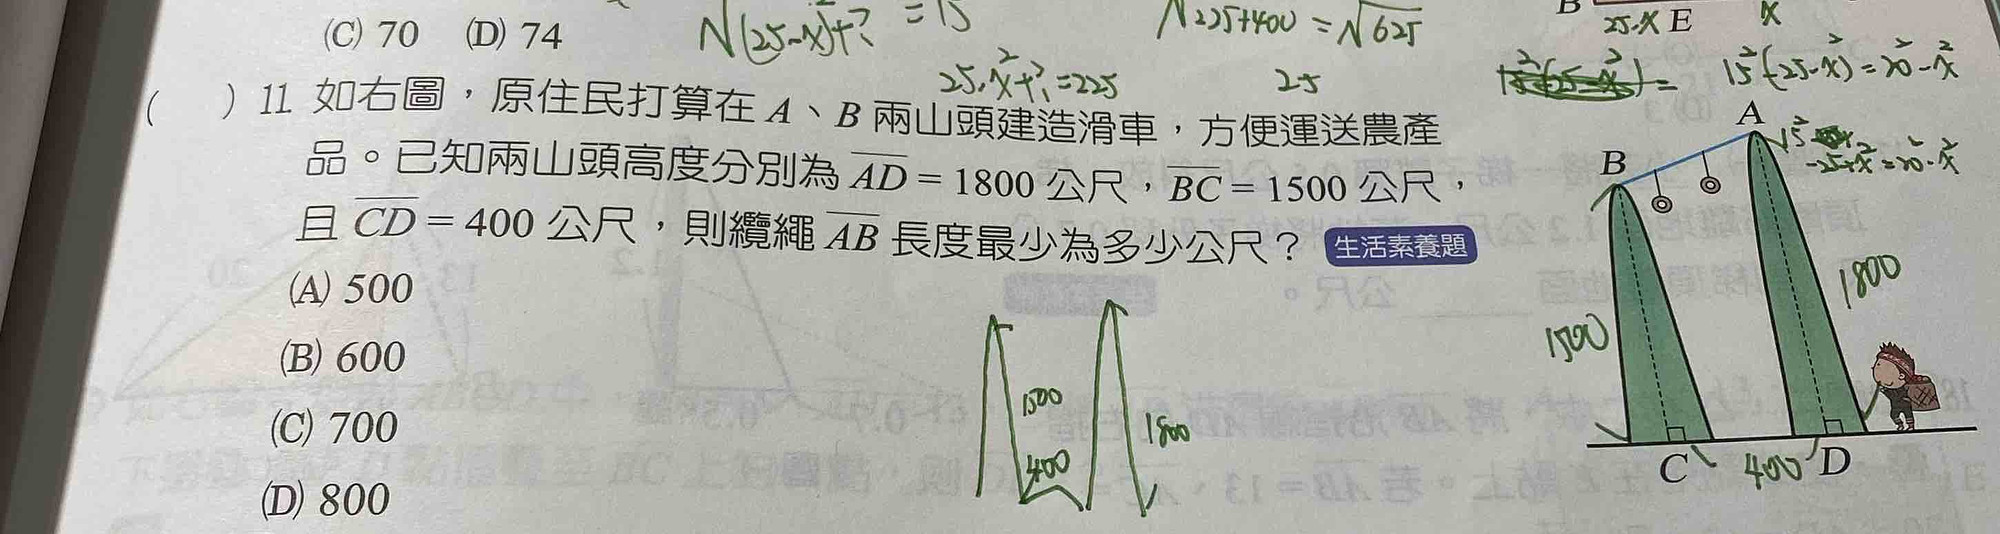 (C) 70 (D) 74
√(25-x)²+? = 15
√225+400 = √625
B
25-x E
x
25-x²+?=225
25
15²(-25-x)²=20²-x²
( ) 11 如右圖，原住民打算在 A、B 兩山頭建造滑車，方便運送農產
品。已知兩山頭高度分別為 AD = 1800 公尺，BC = 1500 公尺，
且 CD = 400 公尺，則纜繩 AB 長度最少為多少公尺？ 生活素養題
(A) 500
(B) 600
(C) 700
(D) 800
1500
400
1800
A
B
1500
1800
C
400
D